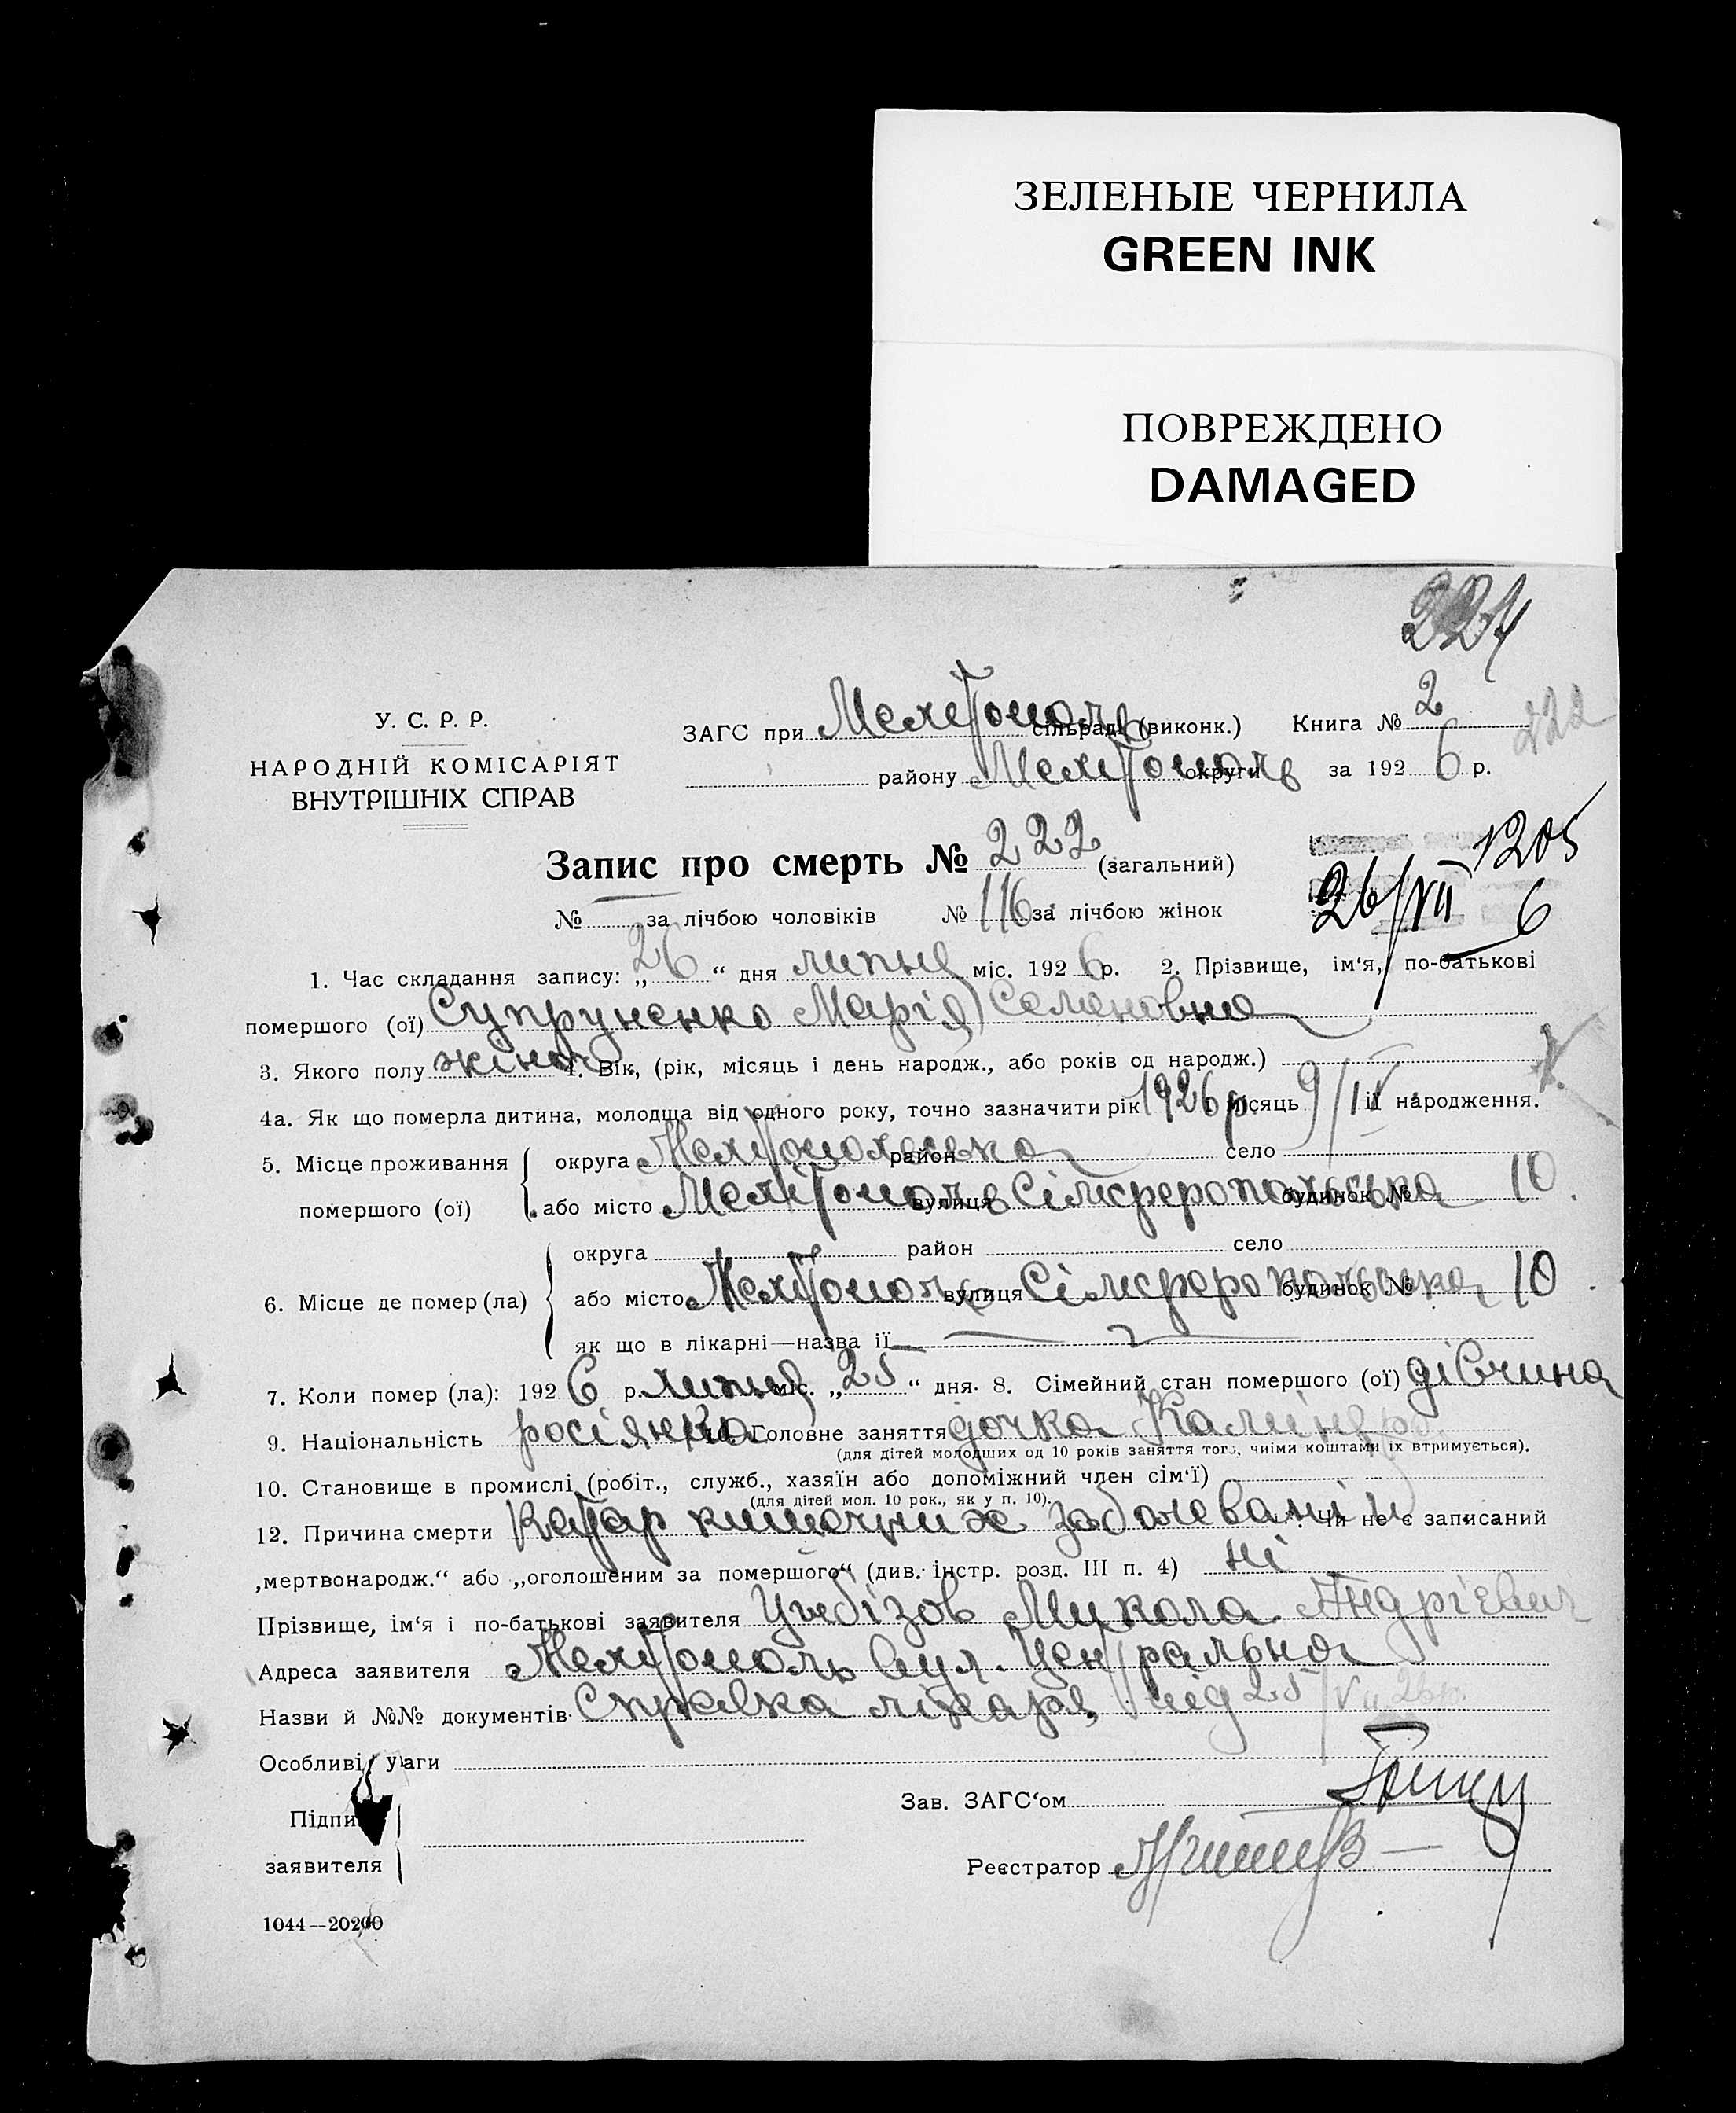 ЗЕЛЕНЫЕ ЧЕРНИЛА
GREEN INK
ПОВРЕЖДЕНО
DAMAGED
224
У. С. Р. Р.
НАРОДНІЙ КОМІСАРІЯТ
ВНУТРІШНІХ СПРАВ
ЗАГС при Мелітополь сільраді (виконк.) Книга № 2 222
району Мелітополь округи за 192 6 р.
Запис про смерть № 222 (загальний) 1205
№ — за лічбою чоловіків № 116 за лічбою жінок 26/VII 6
1. Час складання запису: „ 26 “ дня липня міс. 192 6 р. 2. Прізвище, ім‘я, по-батькові
помершого (ої) Супруненко Марія Семеновна
3. Якого полу жіноч. 4. Вік, (рік, місяць і день народж., або років од народж.)
4а. Як що померла дитина, молодща від одного року, точно зазначити рік 1926 р. місяць 9/IV її народження.
5. Місце проживання помершого (ої) округа Мелітопольська район село
або місто Мелітополь вулиця Сімферопольська будинок № 10.
6. Місце де помер (ла) округа район село
або місто Мелітополь вулиця Сімферопольська будинок № 10.
як що в лікарні—назва її —
7. Коли помер (ла): 192 6 р. липня міс. „ 25 “ дня. 8. Сімейний стан помершого (ої) дівчина
9. Національність росіянка Головне заняття дочка
(для дітей молодших од 10 років заняття того, чиїми коштами їх втримується).
10. Становище в промислі (робіт., служб., хазяїн або допоміжний член сім‘ї)
(для дітей мол. 10 рок., як у п. 10).
12. Причина смерти Катар кишечних заболеваній Чи не є записаний
„мертвонародж.“ або „оголошеним за помершого“ (див. інстр. розд. III п. 4) ні
Прізвище, ім‘я і по-батькові заявителя Микола Андрієвич
Адреса заявителя Мелітополь вул. Центральна
Назви й №№ документів Справка лікаря від 25/VII 26 р.
Особливі уваги
Підпис
заявителя
Зав. ЗАГС‘ом
Реєстратор
1044—20200